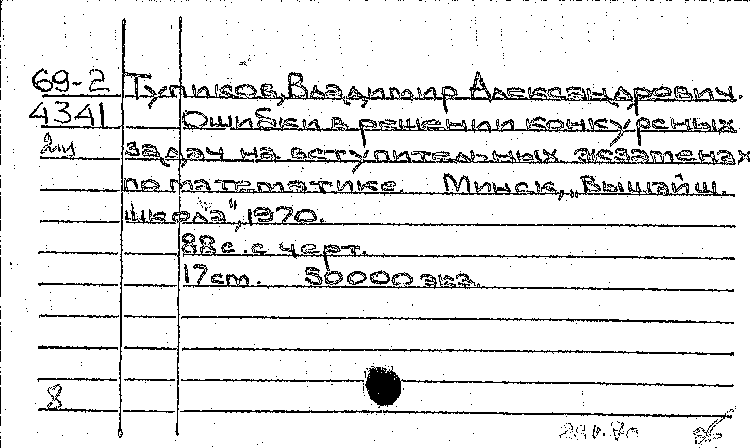 69-2 Тупиков, Владимир Александрович.
4341 Ошибки в решении конкурсных
задач на вступительных экзаменах
по математике. Минск, „Вышэйш.
школа", 1970.
88 с. с черт.
17 cm. 50000 экз.
8